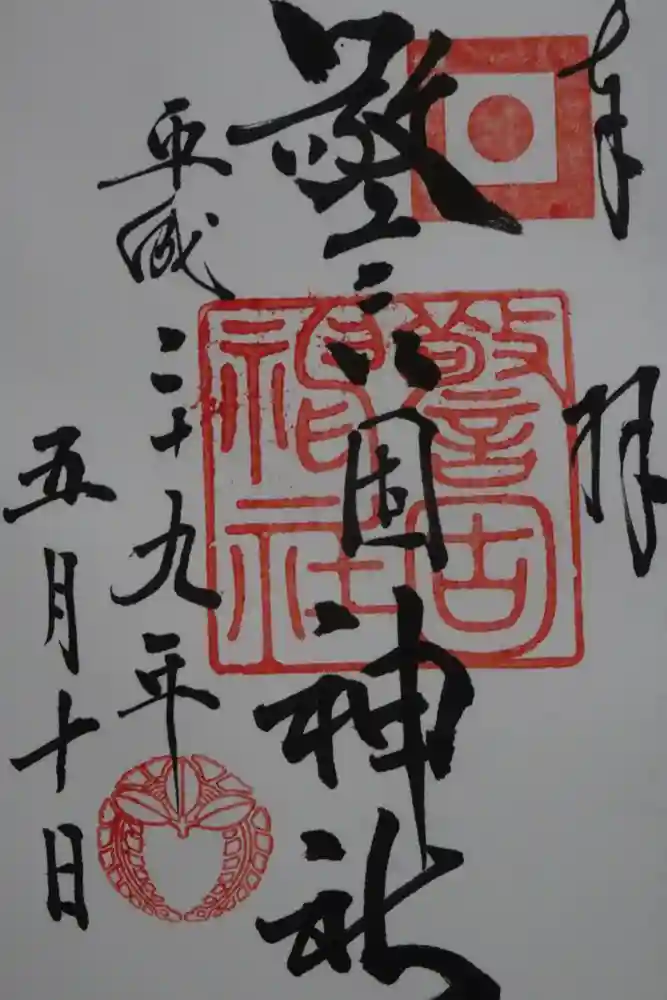 奉拝
警固神社
警固神社
平成二十九年
五月十日